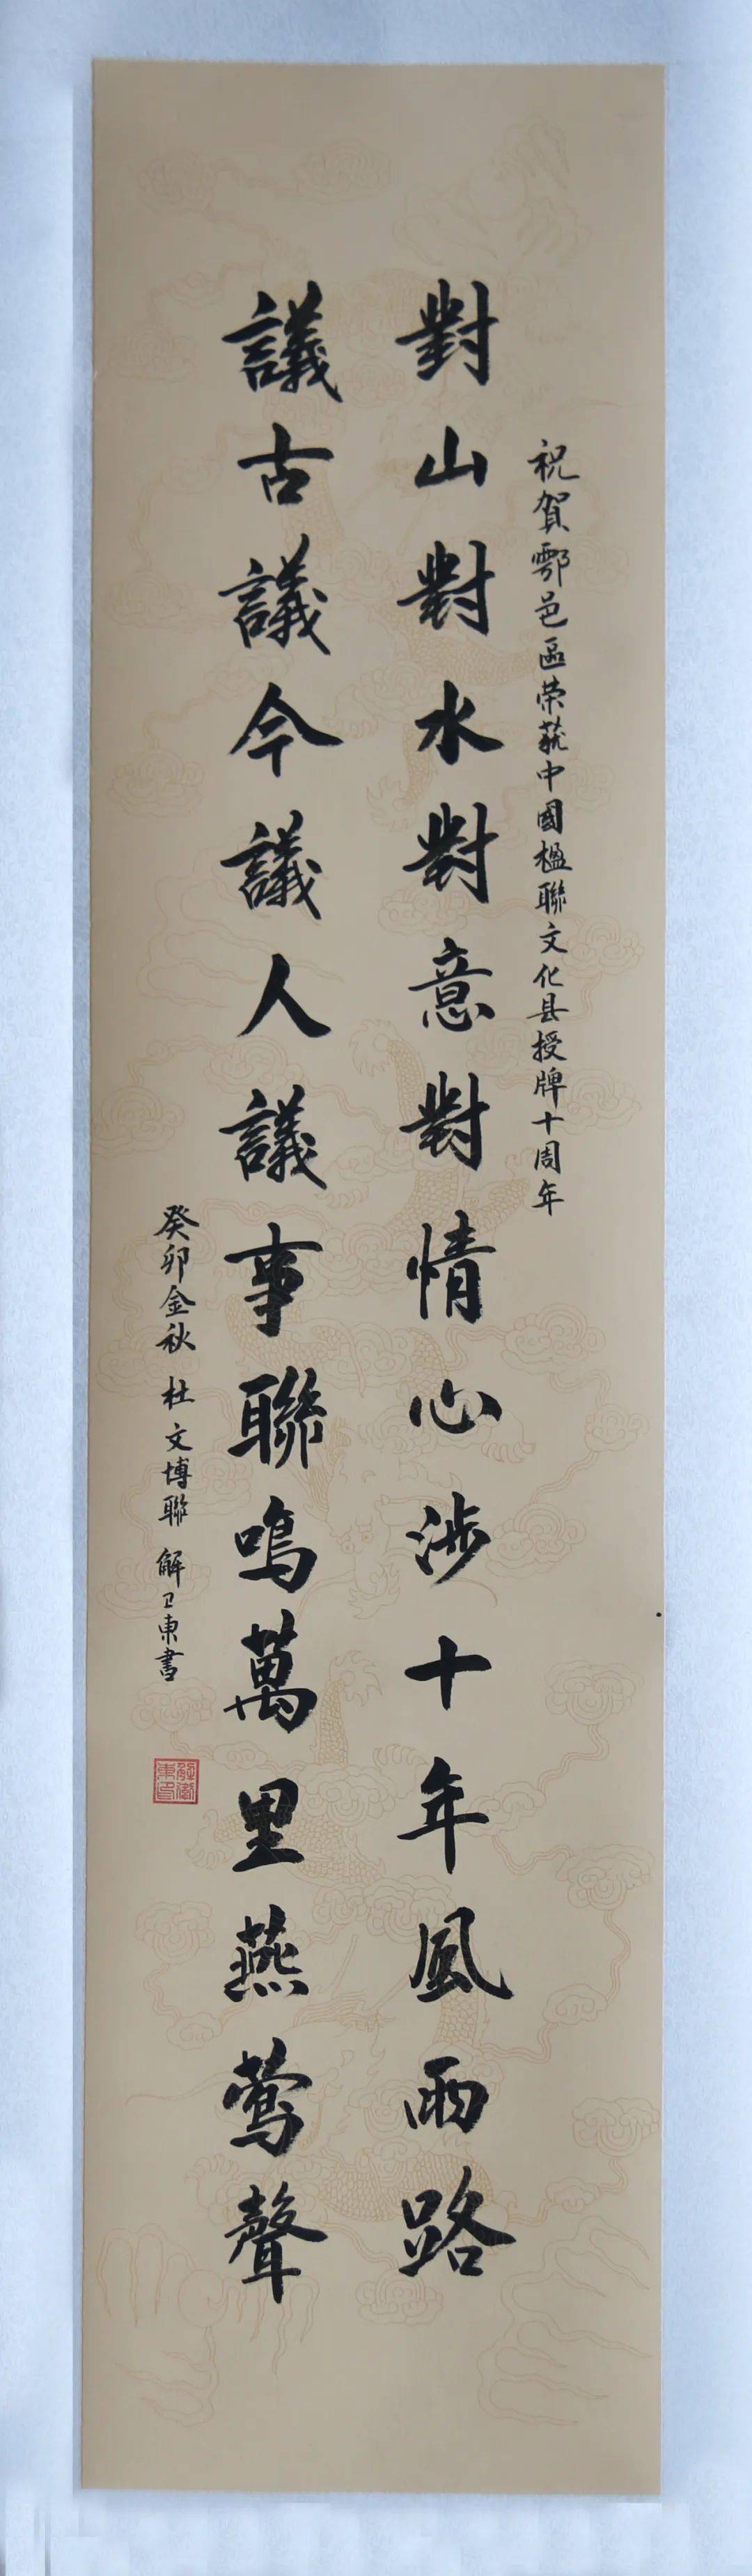 祝賀鄠邑區荣获中國楹聯文化县授牌十周年
對山對水對意對情心涉十年風雨路
議古議今議人議事聯鳴萬里燕鶯聲
癸卯金秋 杜文博聯 解卫東書